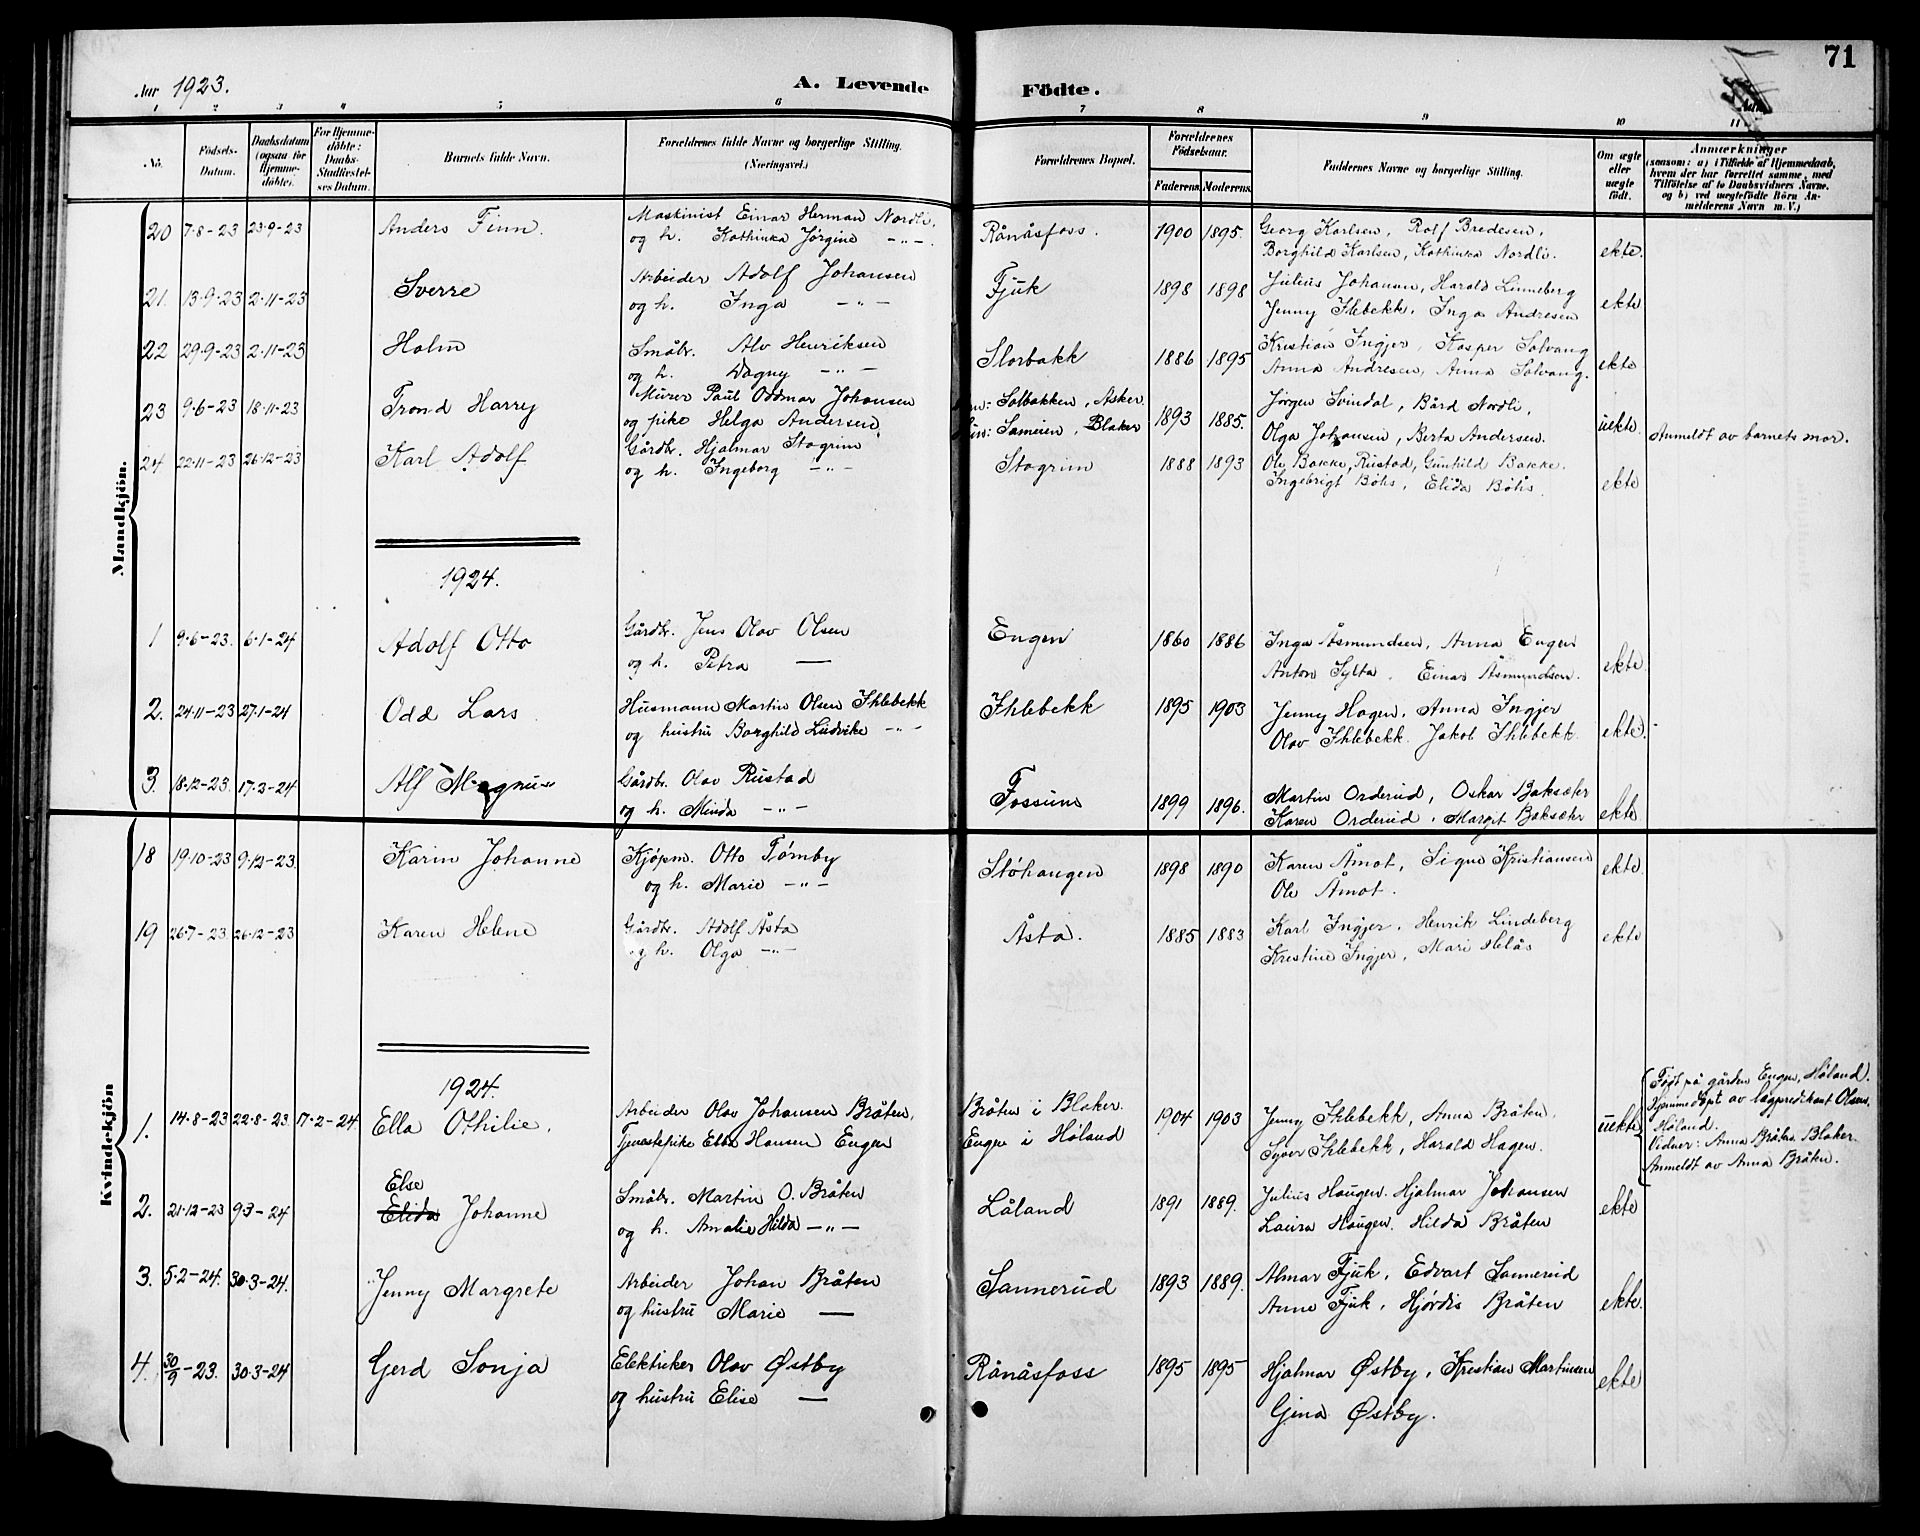 Aar 1923.
A. Levende Födte.
71
1 2 3 4 5 6 7 8 9 10 11
No. Födsels-Datum. Daabsdatum (ogsaa for Hjemme-döbte). For Hjemme-döbte: Daabs-Stadfæstel-ses Datum. Barnets fulde Navn. Forældrenes fulde Navne og borgerlige Stilling. (Næringsvei.) Forældrenes Bopæl. Forældrenes Födselsaar. Faderens. Moderens. Faddernes Navne og borgerlige Stilling. Om ægte eller uægte födt. Anmærkninger (saasom: a) i Tilfælde af Hjemmedaab, hvem der har forrettet samme, med Tilföielse af to Daabsvidners Navne, og b) ved uægtefödte Börn An-melderens Navn m. V.)
Mandkjön.
20 7-8-23 23-9-23 Anders Finn. Maskinist Einar Herman Nordli, Rånåsfoss. 1900 1895. Georg Karlsen, Rolf Bredesen,
og h. Kathinka Jørgine -"-. Borghild Karlsen, Kathinka Nordli. ekte.
21. 13-9-23 2-11-23 Sverre Arbeider Adolf Johansen Fjuk 1898 1898 Julius Johansen, Harald Linneberg
og h. Inga -"- Jenny Ihlebekk, Inga Andresen ekte
22 29-9-23 2-11-23 Holm Småbr. Alv Henriksen Slorbakk 1886 1895 Kristian Ingjer, Kasper Solvang
og h. Dagny -"- Anna Andresen, Anna Solvang. ekte
23 9-6-23 18-11-23 Trond Harry Murer Paul Oddmar Johansen Solbakken, Asker. 1893 1885. Jørgen Svindal, Bård Nordli,
og pike Helga Andersen, Sameien, Blaker Olga Johansen, Berta Andersen. uekte. Anmeldt av barnets mor.
24 22-11-23 26-12-23 Karl Adolf Gårdbr. Hjalmar Stagrim Stagrim 1888 1893 Ole Bakke, Rustad, Gunhild Bakke.
og h. Ingeborg -"- Ingebrigt Böhs, Elida Böhs. ekte
1924.
1 9-6-23. 6-1-24 Adolf Otto Gårdbr. Jens Olav Olsen Engen 1860 1886 Inga Åsmundsen, Anna Engen
og h. Petra — Anton Sylta, Einar Åsmundsen. ekte
2. 24-11-23 27-1-24 Odd Lars. Husmann Martin Olsen Ihlebekk Ihlebekk 1895 1903 Jenny Hagen, Anna Ingjer
og hustru Borghild Ludvike -"- Olav Ihlebekk. Jakob Ihlebekk. ekte.
3. 18-12-23. 17-2-24 Alf Magnus Gårdbr. Olav Rustad Fossum 1899 1896. Martin Orderud, Oskar Baksæter
og h. Minda -"- Karen Orderud, Margit Baksæter ekte
Kvindekjön
18 19-10-23 9-12-23 Karin Johanne Kjøpm. Otto Tømby Støhaugen 1898 1890 Karen Åmot, Signe Kristiansen ekte.
og h. Marie -"- Ole Åmot.
19 26-7-23 26-12-23 Karen Helene Gårdbr. Adolf Åsta Åsta. 1885 1883 Karl Ingjer, Henrik Lindeberg ekte
og h. Olga -"- Kristine Ingjer, Mari Helås
1924.
1. 14-8-23 22-8-23 17-2-24 Ella Othilie. Arbeider Olav Johansen Bråten, Bråten i Blaker. 1904 1903 Jenny Ihlebekk, Anna Bråten. uekte Født på gården Engen, Höland.
Tjenestepike Ebba Hansen Engen Engen i Höland Syver Ihlebekk, Harald Hagen. Hjemmedöpt av lægpredikant Olsen,
Höland.
Vidner: Anna Bråten Blaker.
Anmeldt av Anna Bråten.
Else
2. 21-12-23 9-3-24 Elida Johanne Småbr. Martin O. Bråten Låland 1891 1889. Julius Haugen. Hjalmar Johansen ekte
og h. Amalie Hilda -"- Laura Haugen. Hilda Bråten
3. 5-2-24. 30-3-24. Jenny Margrete Arbeider Johan Bråten Sannerud 1893 1889. Almar Fjuk, Edvart Sannerud
og hustru Marie — Anne Fjuk, Hjørdis Bråten ekte.
4. 30/9-23. 30-3-24 Gerd Sonja Elektriker Olav Østby Rånåsfoss 1895 1895 Hjalmar Østby, Kristian Martinsen ekte
og hustru Elise — Gina Østby.